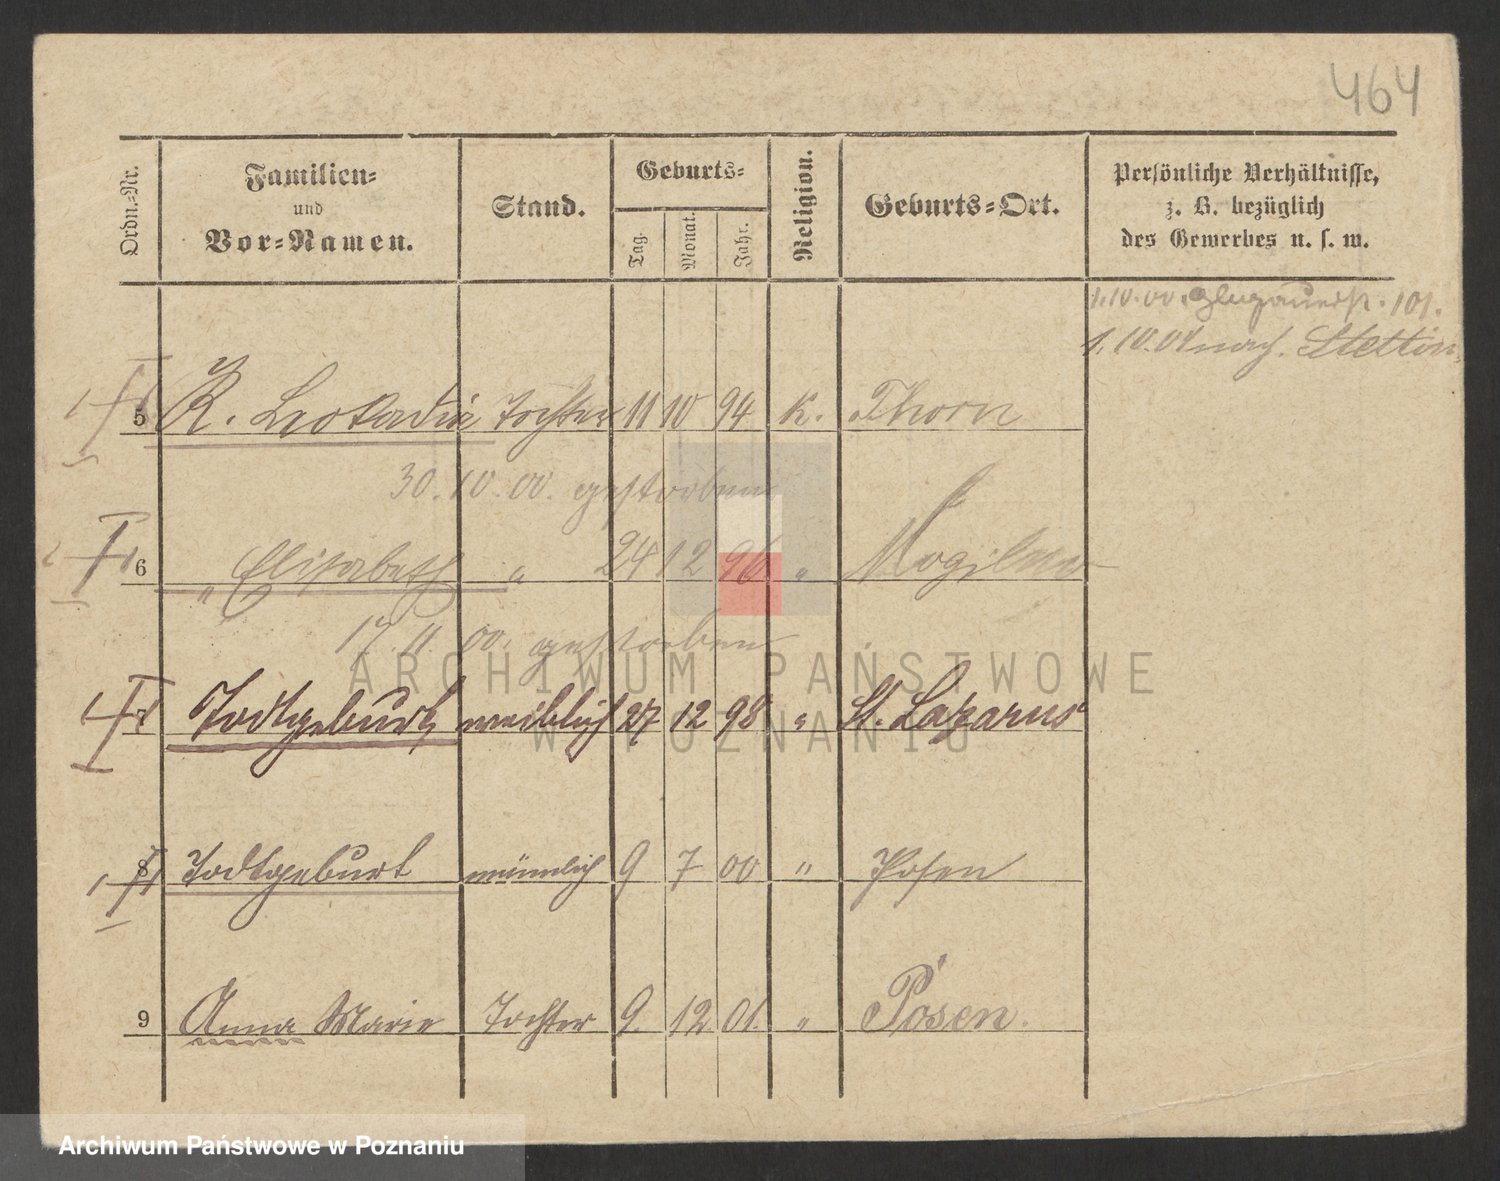 464
Ordn.-Nr.
Familien-
und
Vor-Namen.
Stand.
Geburts-
Tag.
Monat.
Jahr.
Religion.
Geburts-Ort.
Persönliche Verhältnisse,
z. B. bezüglich
des Gewerbes u. s. w.
1.10.00. Glogauerstr. 101.
1.10.04 nach. Stettin.
5 K. Leokadia Tochter 11 10 94 K. Thorn
30.10.00. gestorben
6 " Elisabeth " 24 12 96 " Mogilno
17.11.00. gestorben
ARCHIWUM PAŃSTWOWE
W POZNANIU
Todtgeburt weiblich 27 12 98 " St. Lazarus
8 Todtgeburt männlich 9 7 00 " Posen
9 Anna Marie Tochter 9. 12 01. " Posen.
Archiwum Państwowe w Poznaniu